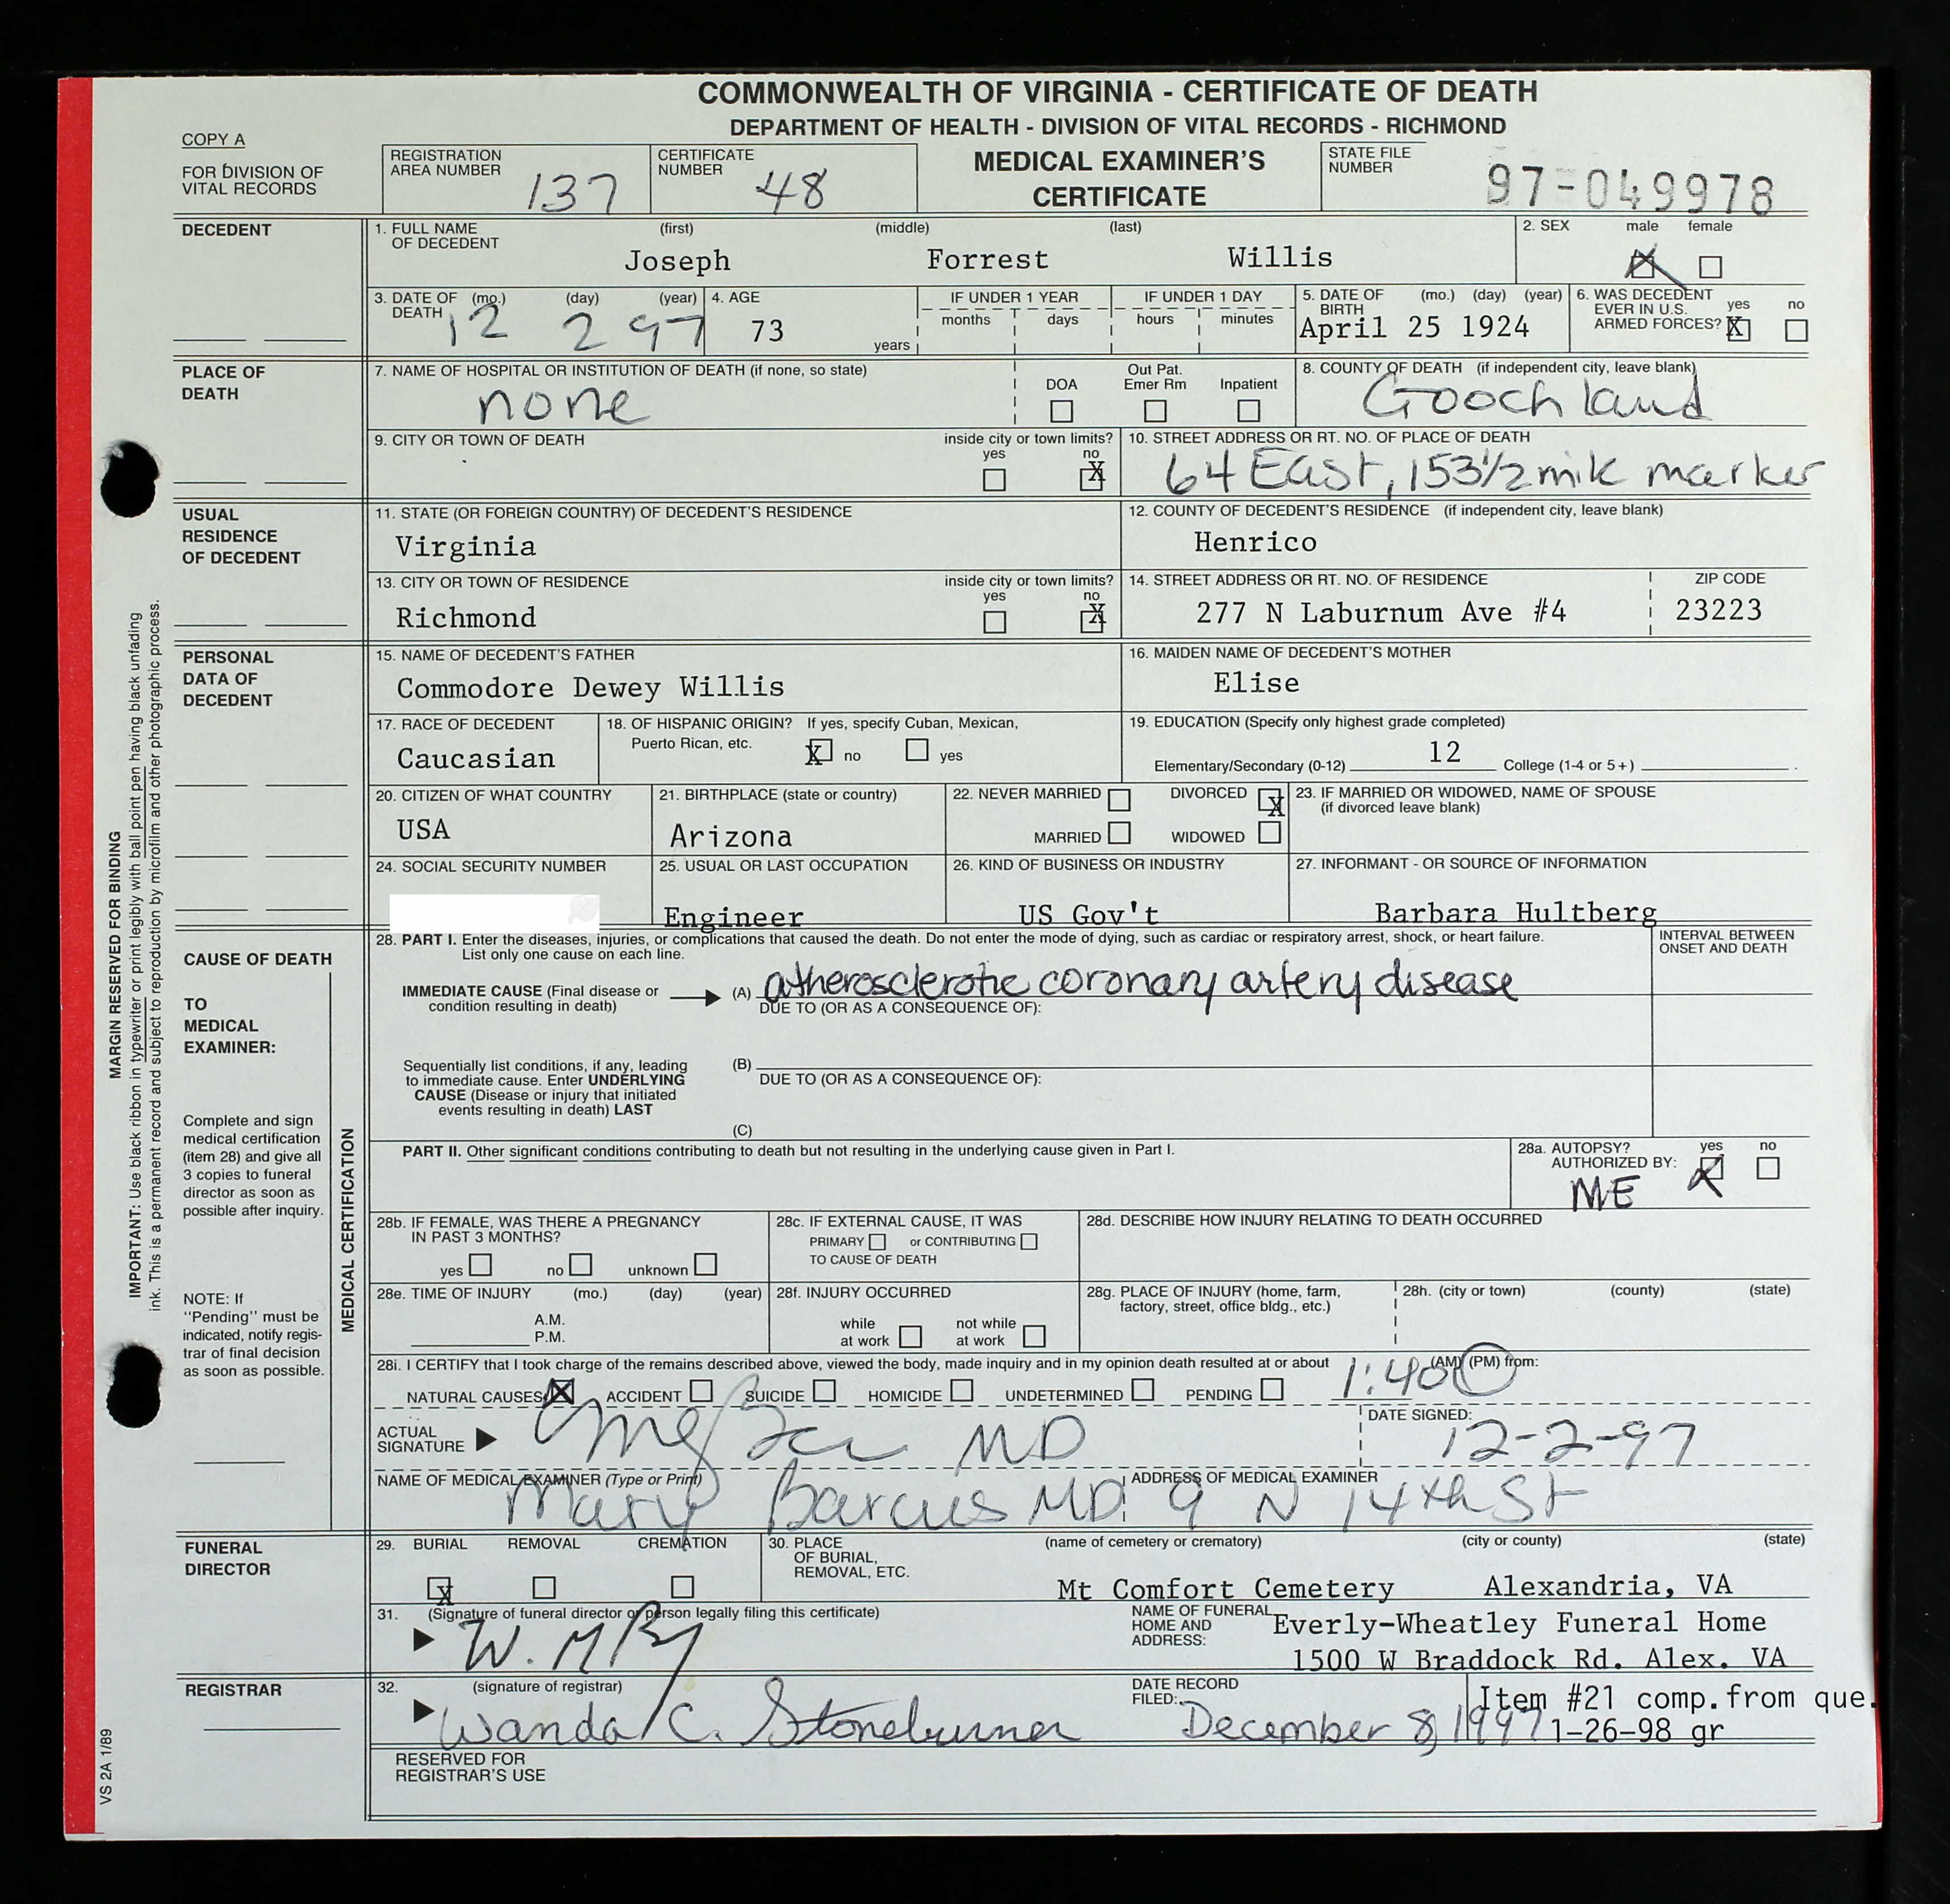 COMMONWEALTH OF VIRGINIA - CERTIFICATE OF DEATH
DEPARTMENT OF HEALTH - DIVISION OF VITAL RECORDS - RICHMOND
COPY A
FOR DIVISION OF
VITAL RECORDS
REGISTRATION
AREA NUMBER 137
CERTIFICATE
NUMBER 48
MEDICAL EXAMINER'S
CERTIFICATE
STATE FILE
NUMBER 97-049978
DECEDENT
1. FULL NAME (first) (middle) (last)
OF DECEDENT
Joseph Forrest Willis
2. SEX male female
X
3. DATE OF (mo.) (day) (year)
DEATH 12 2 97
4. AGE
73
years
IF UNDER 1 YEAR
months days
IF UNDER 1 DAY
hours minutes
5. DATE OF (mo.) (day) (year)
BIRTH
April 25 1924
6. WAS DECEDENT
EVER IN U.S.
ARMED FORCES? yes X no
PLACE OF
DEATH
7. NAME OF HOSPITAL OR INSTITUTION OF DEATH (if none, so state)
none
DOA
Out Pat.
Emer Rm
Inpatient
8. COUNTY OF DEATH (if independent city, leave blank)
Goochland
9. CITY OR TOWN OF DEATH
inside city or town limits?
yes no
X
10. STREET ADDRESS OR RT. NO. OF PLACE OF DEATH
64 East, 153½ mile marker
USUAL
RESIDENCE
OF DECEDENT
11. STATE (OR FOREIGN COUNTRY) OF DECEDENT'S RESIDENCE
Virginia
12. COUNTY OF DECEDENT'S RESIDENCE (if independent city, leave blank)
Henrico
13. CITY OR TOWN OF RESIDENCE
Richmond
inside city or town limits?
yes no
X
14. STREET ADDRESS OR RT. NO. OF RESIDENCE
277 N Laburnum Ave #4
ZIP CODE
23223
PERSONAL
DATA OF
DECEDENT
15. NAME OF DECEDENT'S FATHER
Commodore Dewey Willis
16. MAIDEN NAME OF DECEDENT'S MOTHER
Elise
17. RACE OF DECEDENT
Caucasian
18. OF HISPANIC ORIGIN? If yes, specify Cuban, Mexican,
Puerto Rican, etc. X no yes
19. EDUCATION (Specify only highest grade completed)
Elementary/Secondary (0-12) 12 College (1-4 or 5+)
20. CITIZEN OF WHAT COUNTRY
USA
21. BIRTHPLACE (state or country)
Arizona
22. NEVER MARRIED DIVORCED X
MARRIED WIDOWED
23. IF MARRIED OR WIDOWED, NAME OF SPOUSE
(if divorced leave blank)
24. SOCIAL SECURITY NUMBER
25. USUAL OR LAST OCCUPATION
Engineer
26. KIND OF BUSINESS OR INDUSTRY
US Gov't
27. INFORMANT - OR SOURCE OF INFORMATION
Barbara Hultberg
CAUSE OF DEATH
TO
MEDICAL
EXAMINER:
Complete and sign
medical certification
(item 28) and give all
3 copies to funeral
director as soon as
possible after inquiry.
NOTE: If
"Pending" must be
indicated, notify regis-
trar of final decision
as soon as possible.
MEDICAL CERTIFICATION
28. PART I. Enter the diseases, injuries, or complications that caused the death. Do not enter the mode of dying, such as cardiac or respiratory arrest, shock, or heart failure.
List only one cause on each line.
INTERVAL BETWEEN
ONSET AND DEATH
IMMEDIATE CAUSE (Final disease or
condition resulting in death)
(A) atherosclerotic coronary artery disease
DUE TO (OR AS A CONSEQUENCE OF):
Sequentially list conditions, if any, leading
to immediate cause. Enter UNDERLYING
CAUSE (Disease or injury that initiated
events resulting in death) LAST
(B)
DUE TO (OR AS A CONSEQUENCE OF):
(C)
PART II. Other significant conditions contributing to death but not resulting in the underlying cause given in Part I.
28a. AUTOPSY? yes no
AUTHORIZED BY: X
ME
28b. IF FEMALE, WAS THERE A PREGNANCY
IN PAST 3 MONTHS?
yes no unknown
28c. IF EXTERNAL CAUSE, IT WAS
PRIMARY or CONTRIBUTING
TO CAUSE OF DEATH
28d. DESCRIBE HOW INJURY RELATING TO DEATH OCCURRED
28e. TIME OF INJURY (mo.) (day) (year)
A.M.
P.M.
28f. INJURY OCCURRED
while
at work
not while
at work
28g. PLACE OF INJURY (home, farm,
factory, street, office bldg., etc.)
28h. (city or town) (county) (state)
28i. I CERTIFY that I took charge of the remains described above, viewed the body, made inquiry and in my opinion death resulted at or about 1:40 (AM) (PM) from:
NATURAL CAUSES X ACCIDENT SUICIDE HOMICIDE UNDETERMINED PENDING
ACTUAL
SIGNATURE MD
DATE SIGNED:
12-2-97
NAME OF MEDICAL EXAMINER (Type or Print)
Mary Barcus MD
ADDRESS OF MEDICAL EXAMINER
9 N 14th St
FUNERAL
DIRECTOR
29. BURIAL REMOVAL CREMATION
X
30. PLACE
OF BURIAL,
REMOVAL, ETC.
(name of cemetery or crematory) (city or county) (state)
Mt Comfort Cemetery Alexandria, VA
31. (Signature of funeral director or person legally filing this certificate)
NAME OF FUNERAL
HOME AND
ADDRESS:
Everly-Wheatley Funeral Home
1500 W Braddock Rd. Alex. VA
REGISTRAR
32. (signature of registrar)
Wanda C. Stoneburner
DATE RECORD
FILED:
December 8, 1997
Item #21 comp. from que.
1-26-98 gr
RESERVED FOR
REGISTRAR'S USE
MARGIN RESERVED FOR BINDING
IMPORTANT: Use black ribbon in typewriter or print legibly with ball point pen having black unfading
ink. This is a permanent record and subject to reproduction by microfilm and other photographic process.
VS 2A 1/89